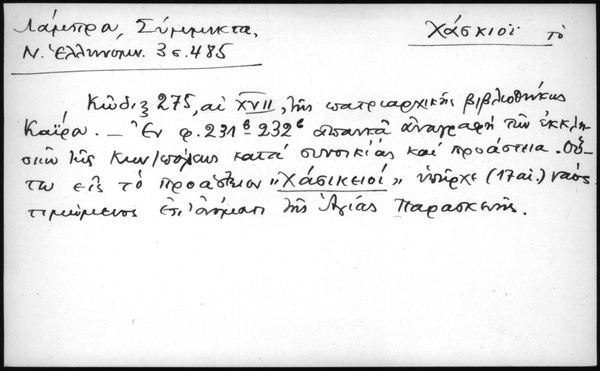 Λάμπρα, Σύμμικτα, Χάσκιοϊ τὸ
Ν. Ἑλληνομν. 3 σ. 485
Κῶδιξ 275, αἰ XVII, τῆς πατριαρχικῆς βιβλιοθήκης
Καΐρα. — Ἐν φ. 231β 232β ἀπαντᾶ ἀναγραφὴ τῶν ἐκκλη-
σιῶν τῆς Κων/πόλεως κατὰ συνοικίας καὶ προάστεια. Οὕ-
τω εἰς τὸ προάστειον "Χάσικειοί" ὑπῆρχε (17 αἰ.) ναὸς
τιμώμενος ἐπ' ὀνόματι τῆς Ἁγίας Παρασκευῆς.